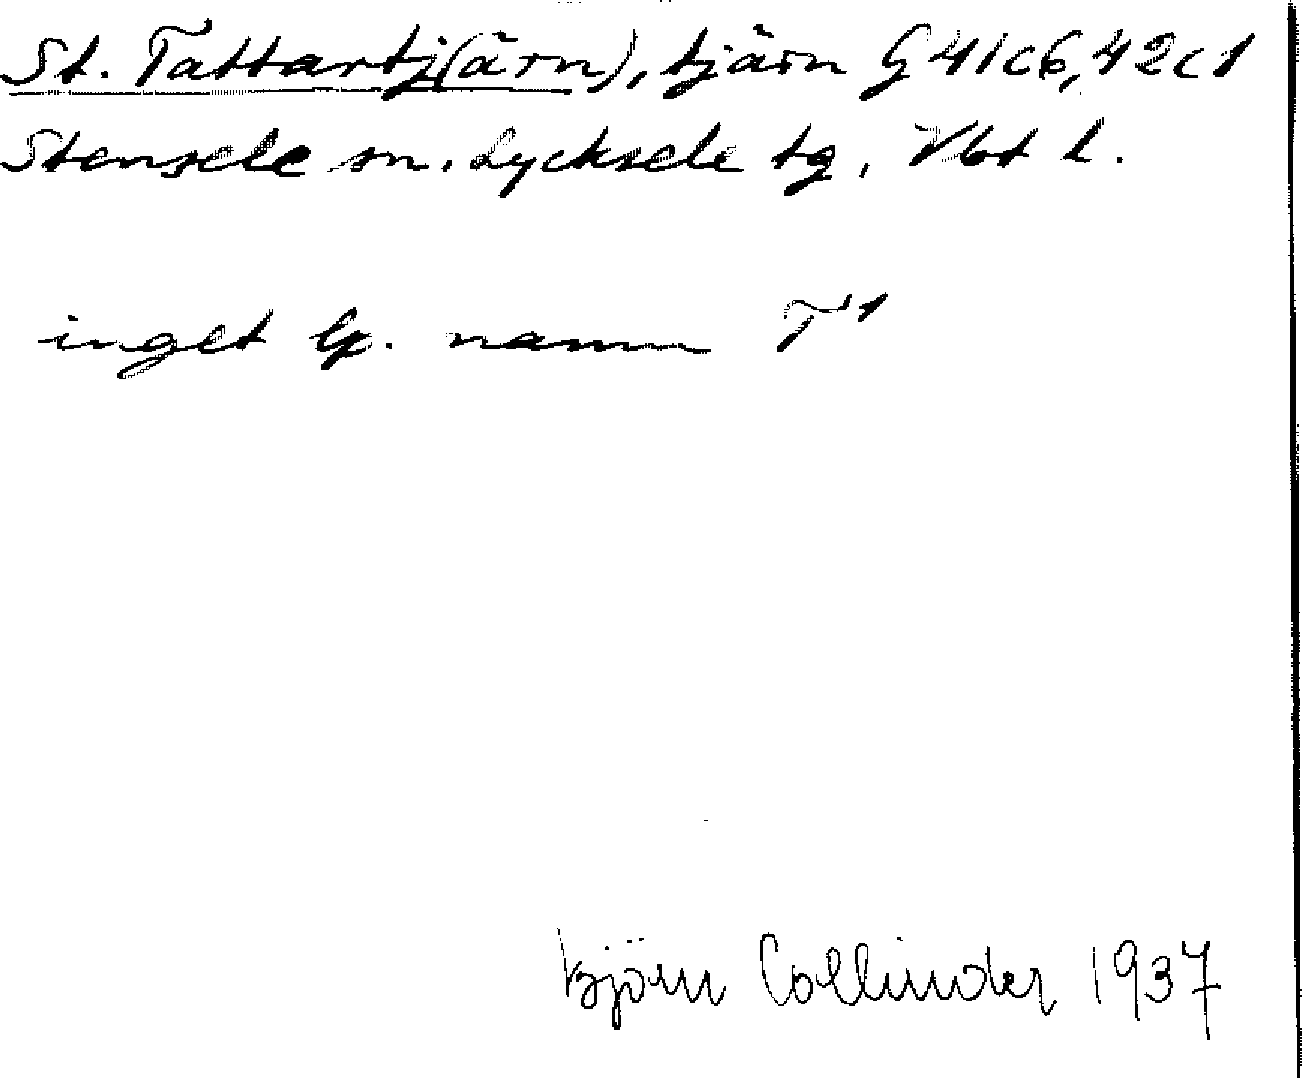 St. Tattartj(ärn), tjärn G 41c6, 42c1
Stensele sn. Lycksele tg, Vbt l.
inget lp. namn T 1
Björn Collinder 1937